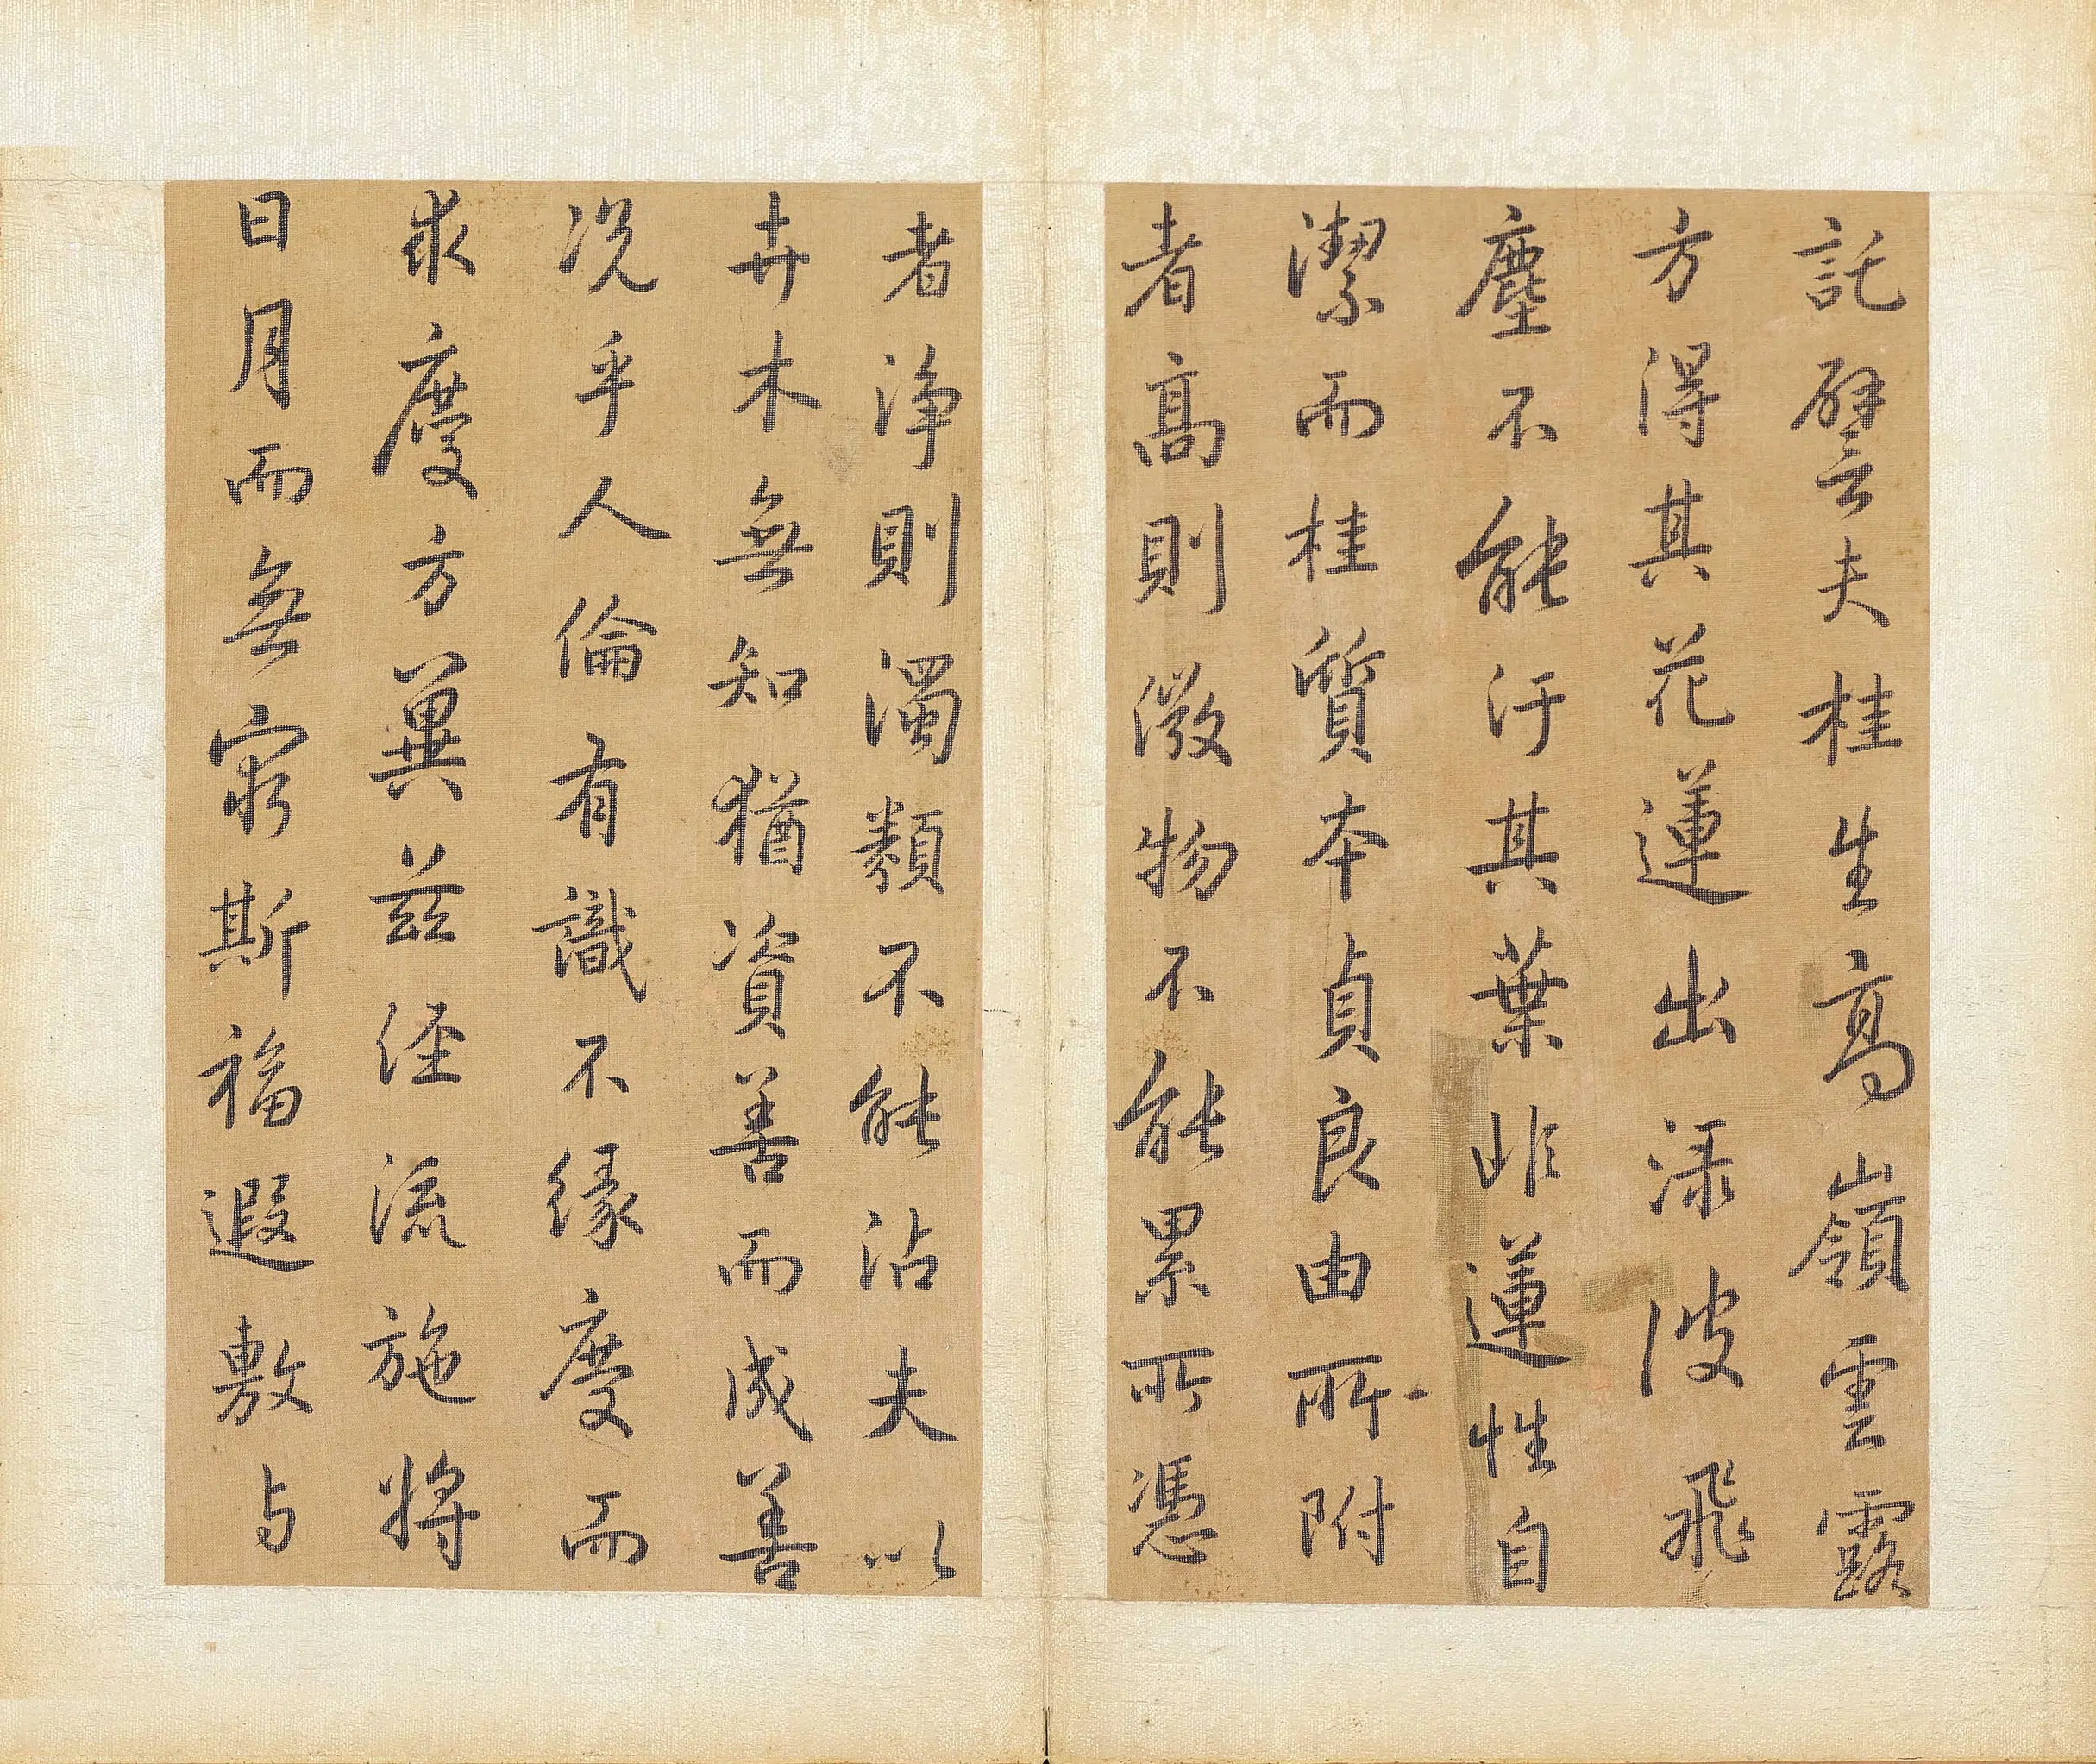 託譬夫桂生高嶺雲露
方得其花蓮出淥波飛
塵不能汙其葉非蓮性自
潔而桂質本貞良由所附
者高則微物不能累所憑
者淨則濁類不能沾夫以
卉木無知猶資善而成善
況乎人倫有識不緣慶而
求慶方冀茲經流施將
日月而無窮斯福遐敷与